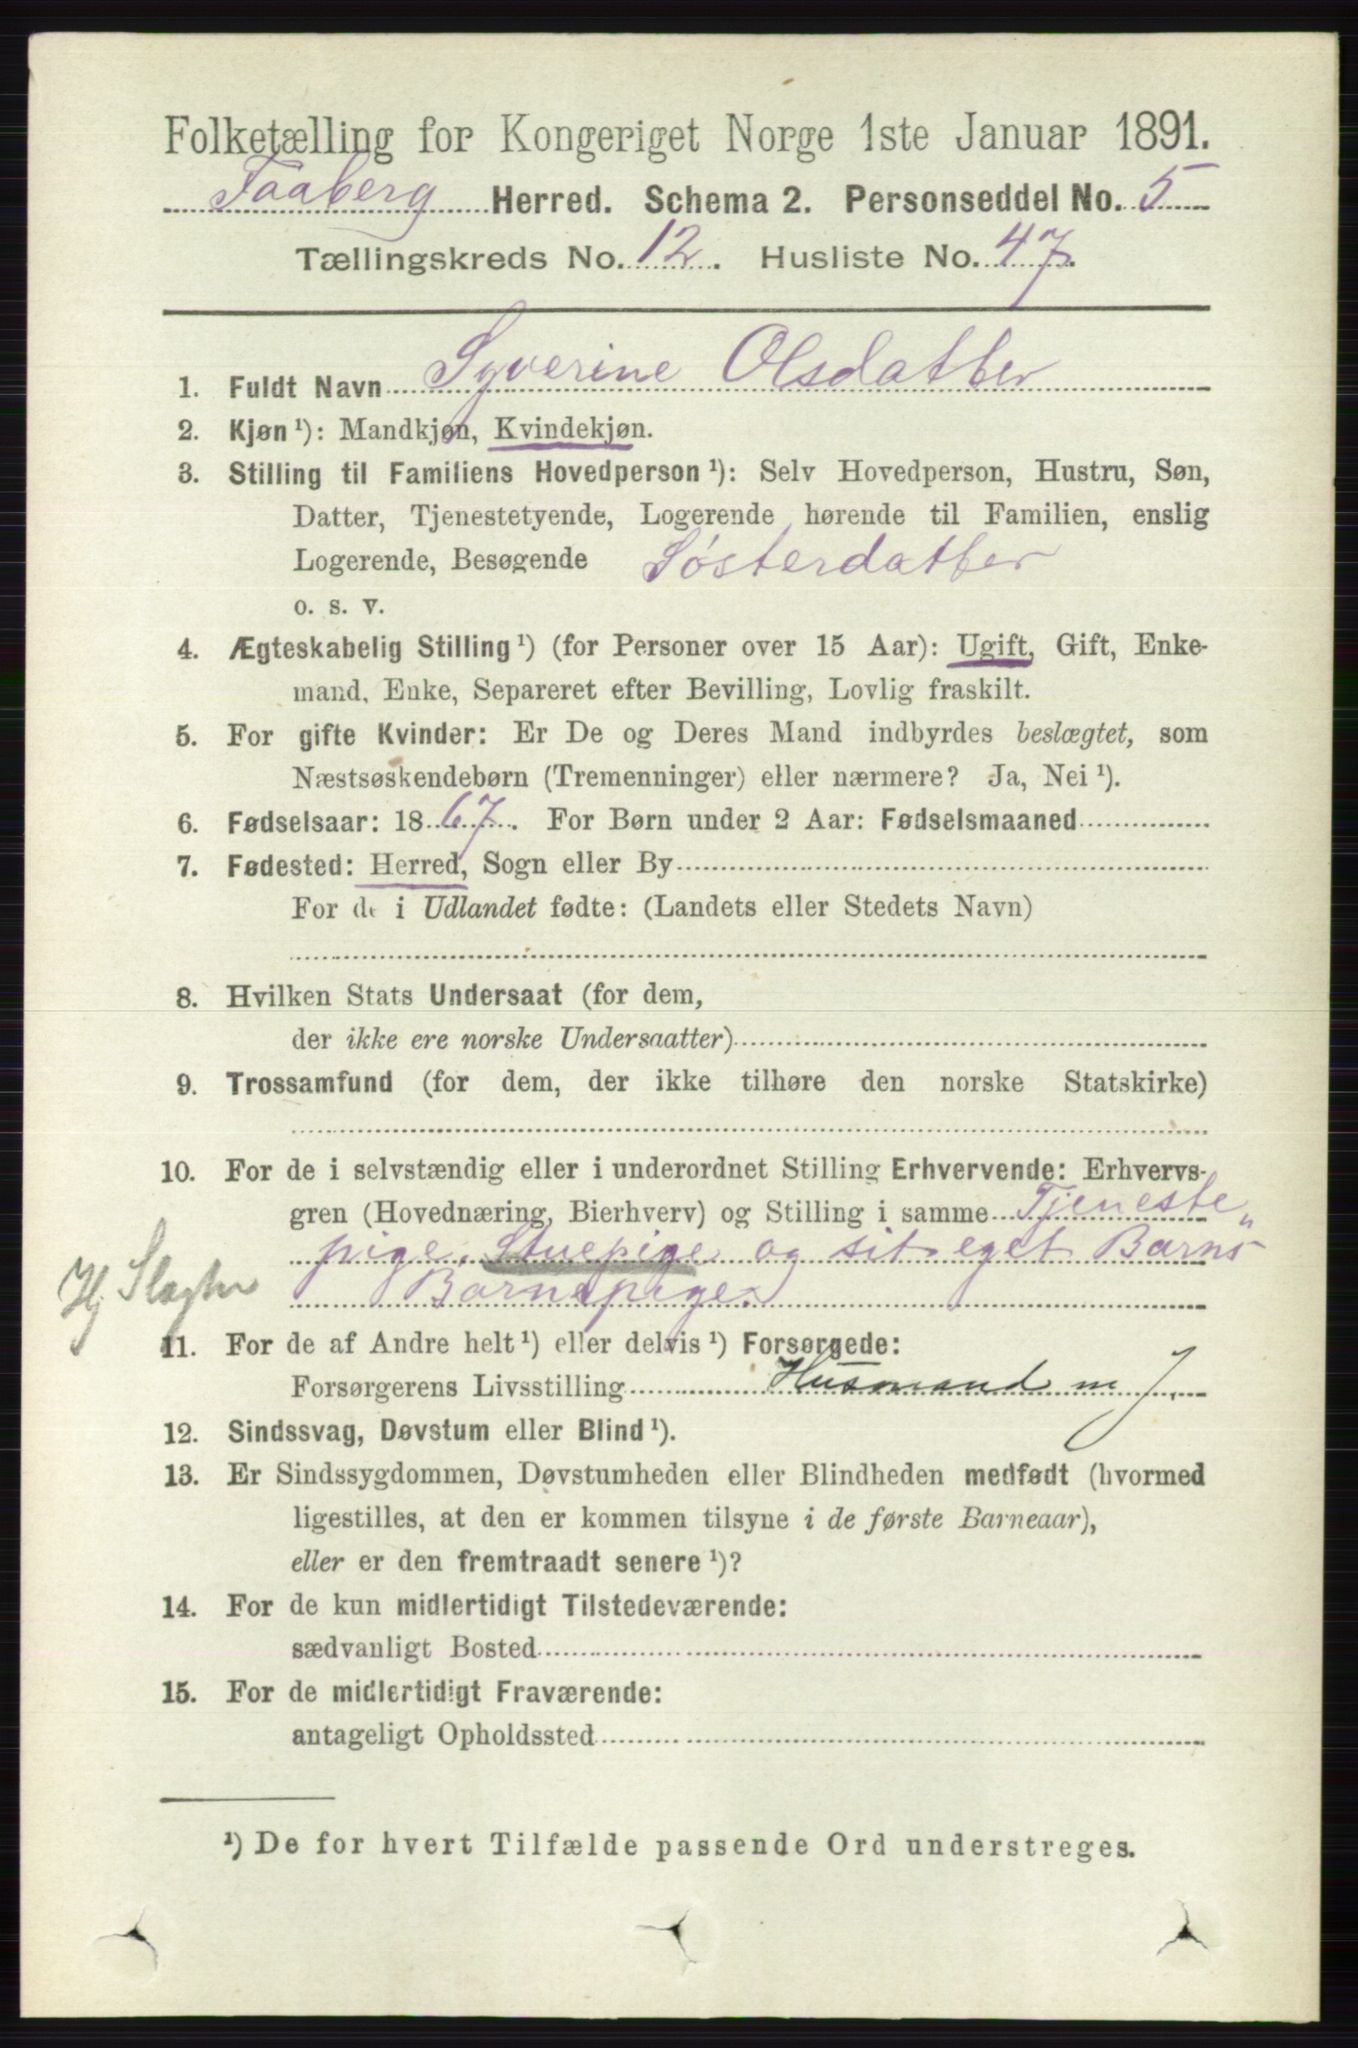 Folketælling for Kongeriget Norge 1ste Januar 1891.
Faaberg Herred. Schema 2. Personseddel No. 5
Tællingskreds No. 12. Husliste No. 47.
1. Fuldt Navn Syverine Olsdatter
2. Kjøn ¹): Mandkjøn, Kvindekjøn.
3. Stilling til Familiens Hovedperson ¹): Selv Hovedperson, Hustru, Søn,
Datter, Tjenestetyende, Logerende hørende til Familien, enslig
Logerende, Besøgende Søsterdatter
o. s. v.
4. Ægteskabelig Stilling ¹) (for Personer over 15 Aar): Ugift, Gift, Enke-
mand, Enke, Separeret efter Bevilling, Lovlig fraskilt.
5. For gifte Kvinder: Er De og Deres Mand indbyrdes beslægtet, som
Næstsøskendebørn (Tremenninger) eller nærmere? Ja, Nei ¹).
6. Fødselsaar: 1867. For Børn under 2 Aar: Fødselsmaaned
7. Fødested: Herred, Sogn eller By
For de i Udlandet fødte: (Landets eller Stedets Navn)
8. Hvilken Stats Undersaat (for dem,
der ikke ere norske Undersaatter)
9. Trossamfund (for dem, der ikke tilhøre den norske Statskirke)
10. For de i selvstændig eller i underordnet Stilling Erhvervende: Erhvervs-
gren (Hovednæring, Bierhverv) og Stilling i samme Tjeneste„
pige. Stuepige og sit eget Barns
Hj Slagter Barnepige.
11. For de af Andre helt ¹) eller delvis ¹) Forsørgede:
Forsørgerens Livsstilling Husmand m J.
12. Sindssvag, Døvstum eller Blind ¹).
13. Er Sindssygdommen, Døvstumheden eller Blindheden medfødt (hvormed
ligestilles, at den er kommen tilsyne i de første Barneaar),
eller er den fremtraadt senere ¹)?
14. For de kun midlertidigt Tilstedeværende:
sædvanligt Bosted
15. For de midlertidigt Fraværende:
antageligt Opholdssted
¹) De for hvert Tilfælde passende Ord understreges.